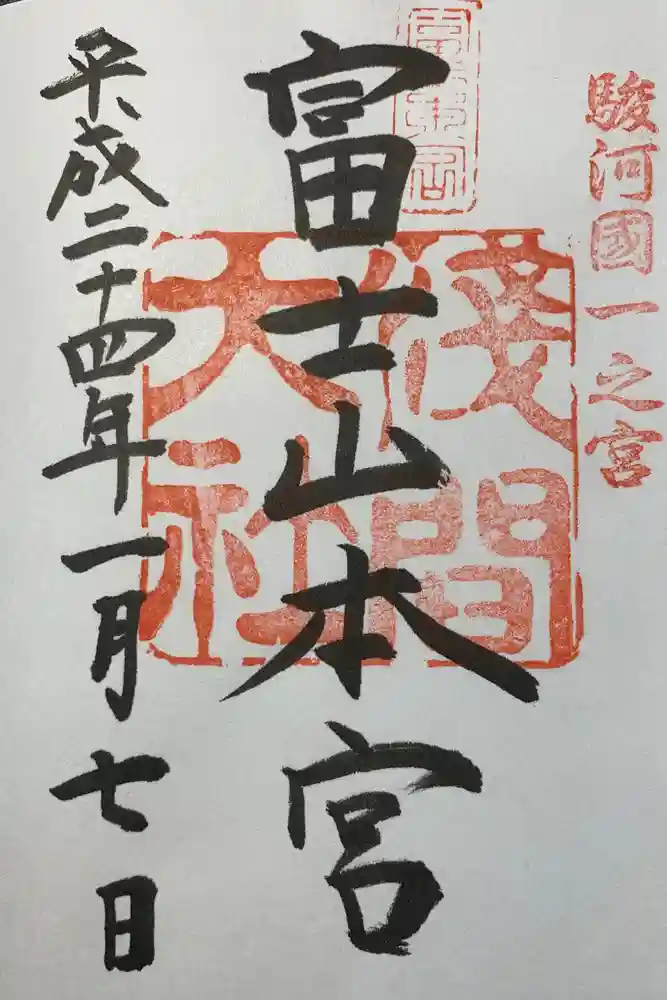 駿河國一之宮
富士山本宮
淺間大社
平成二十四年一月七日